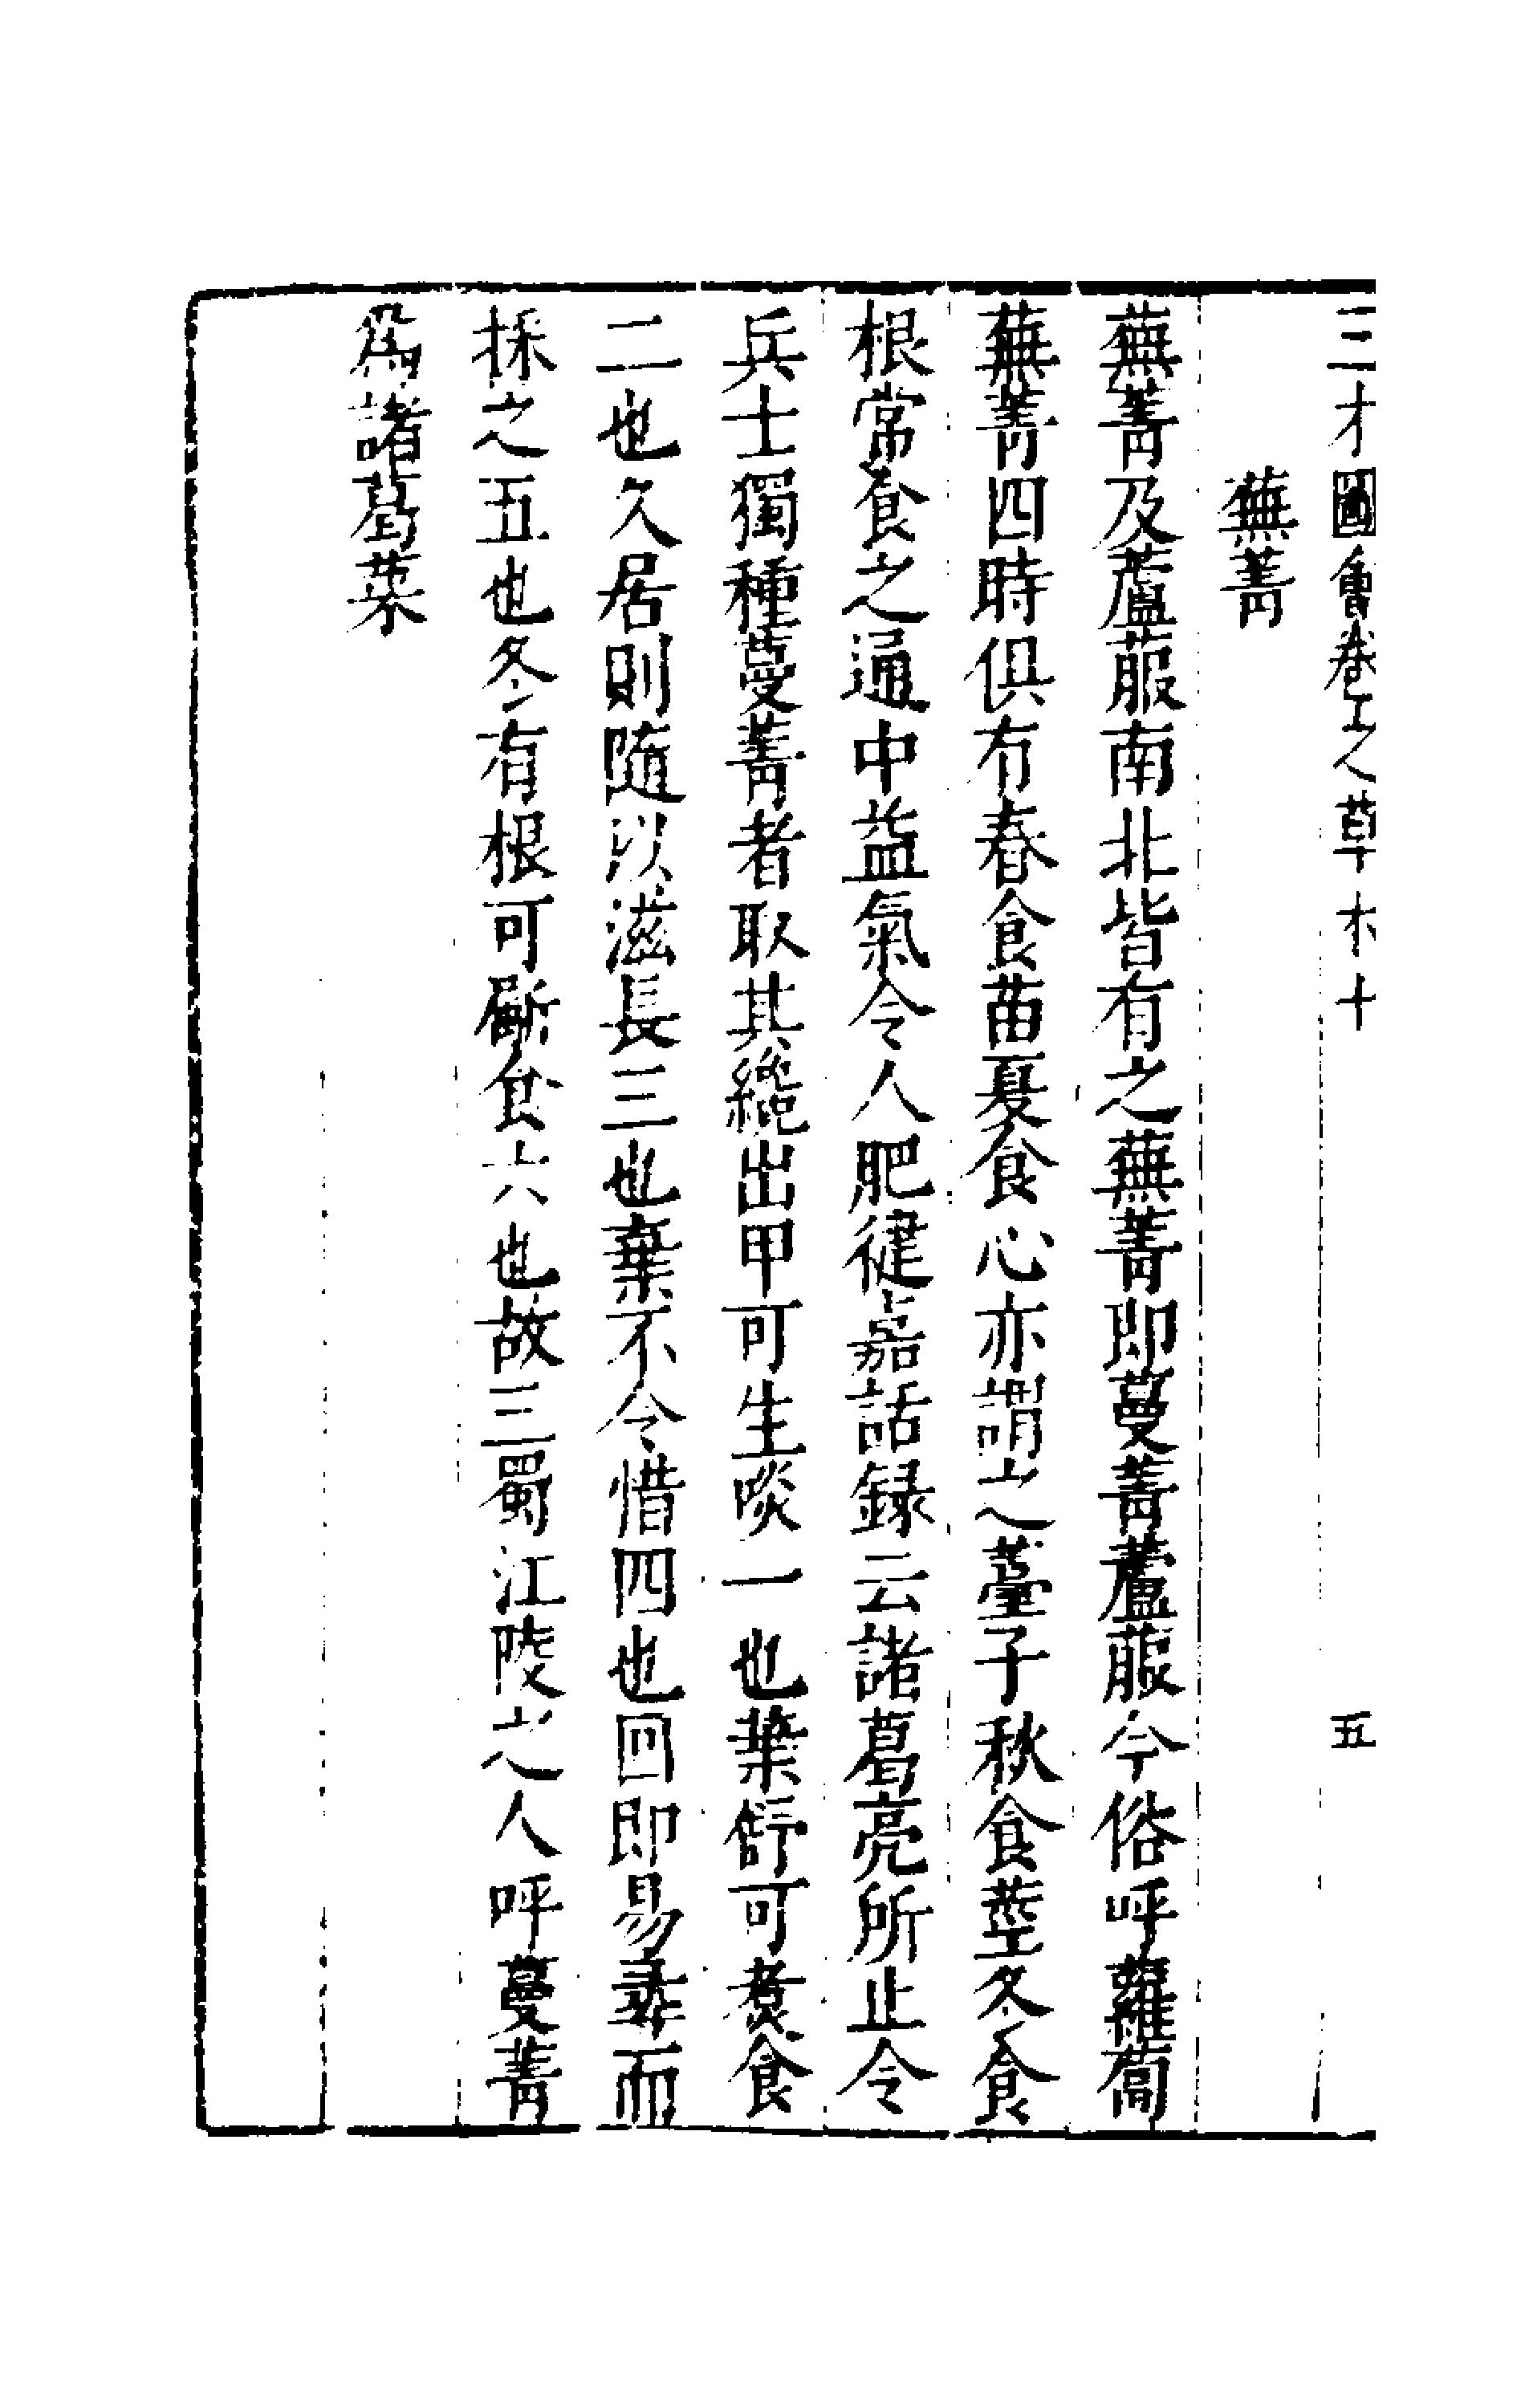 三才圖會卷之草木十 五
蕪菁
蕪菁及蘆菔南北皆有之蕪菁即蔓菁蘆菔今俗呼蘿蔔
蕪菁四時俱有春食苗夏食心亦謂之薹子秋食莖冬食
根常食之通中益氣令人肥健嘉話録云諸葛亮所止令
兵士獨種蔓菁者取其纔出甲可生啖一也葉舒可煑食
二也久居則隨以滋長三也棄不令惜四也回即易尋而
採之五也冬有根可斸食六也故三蜀江陵之人呼蔓菁
為諸葛菜